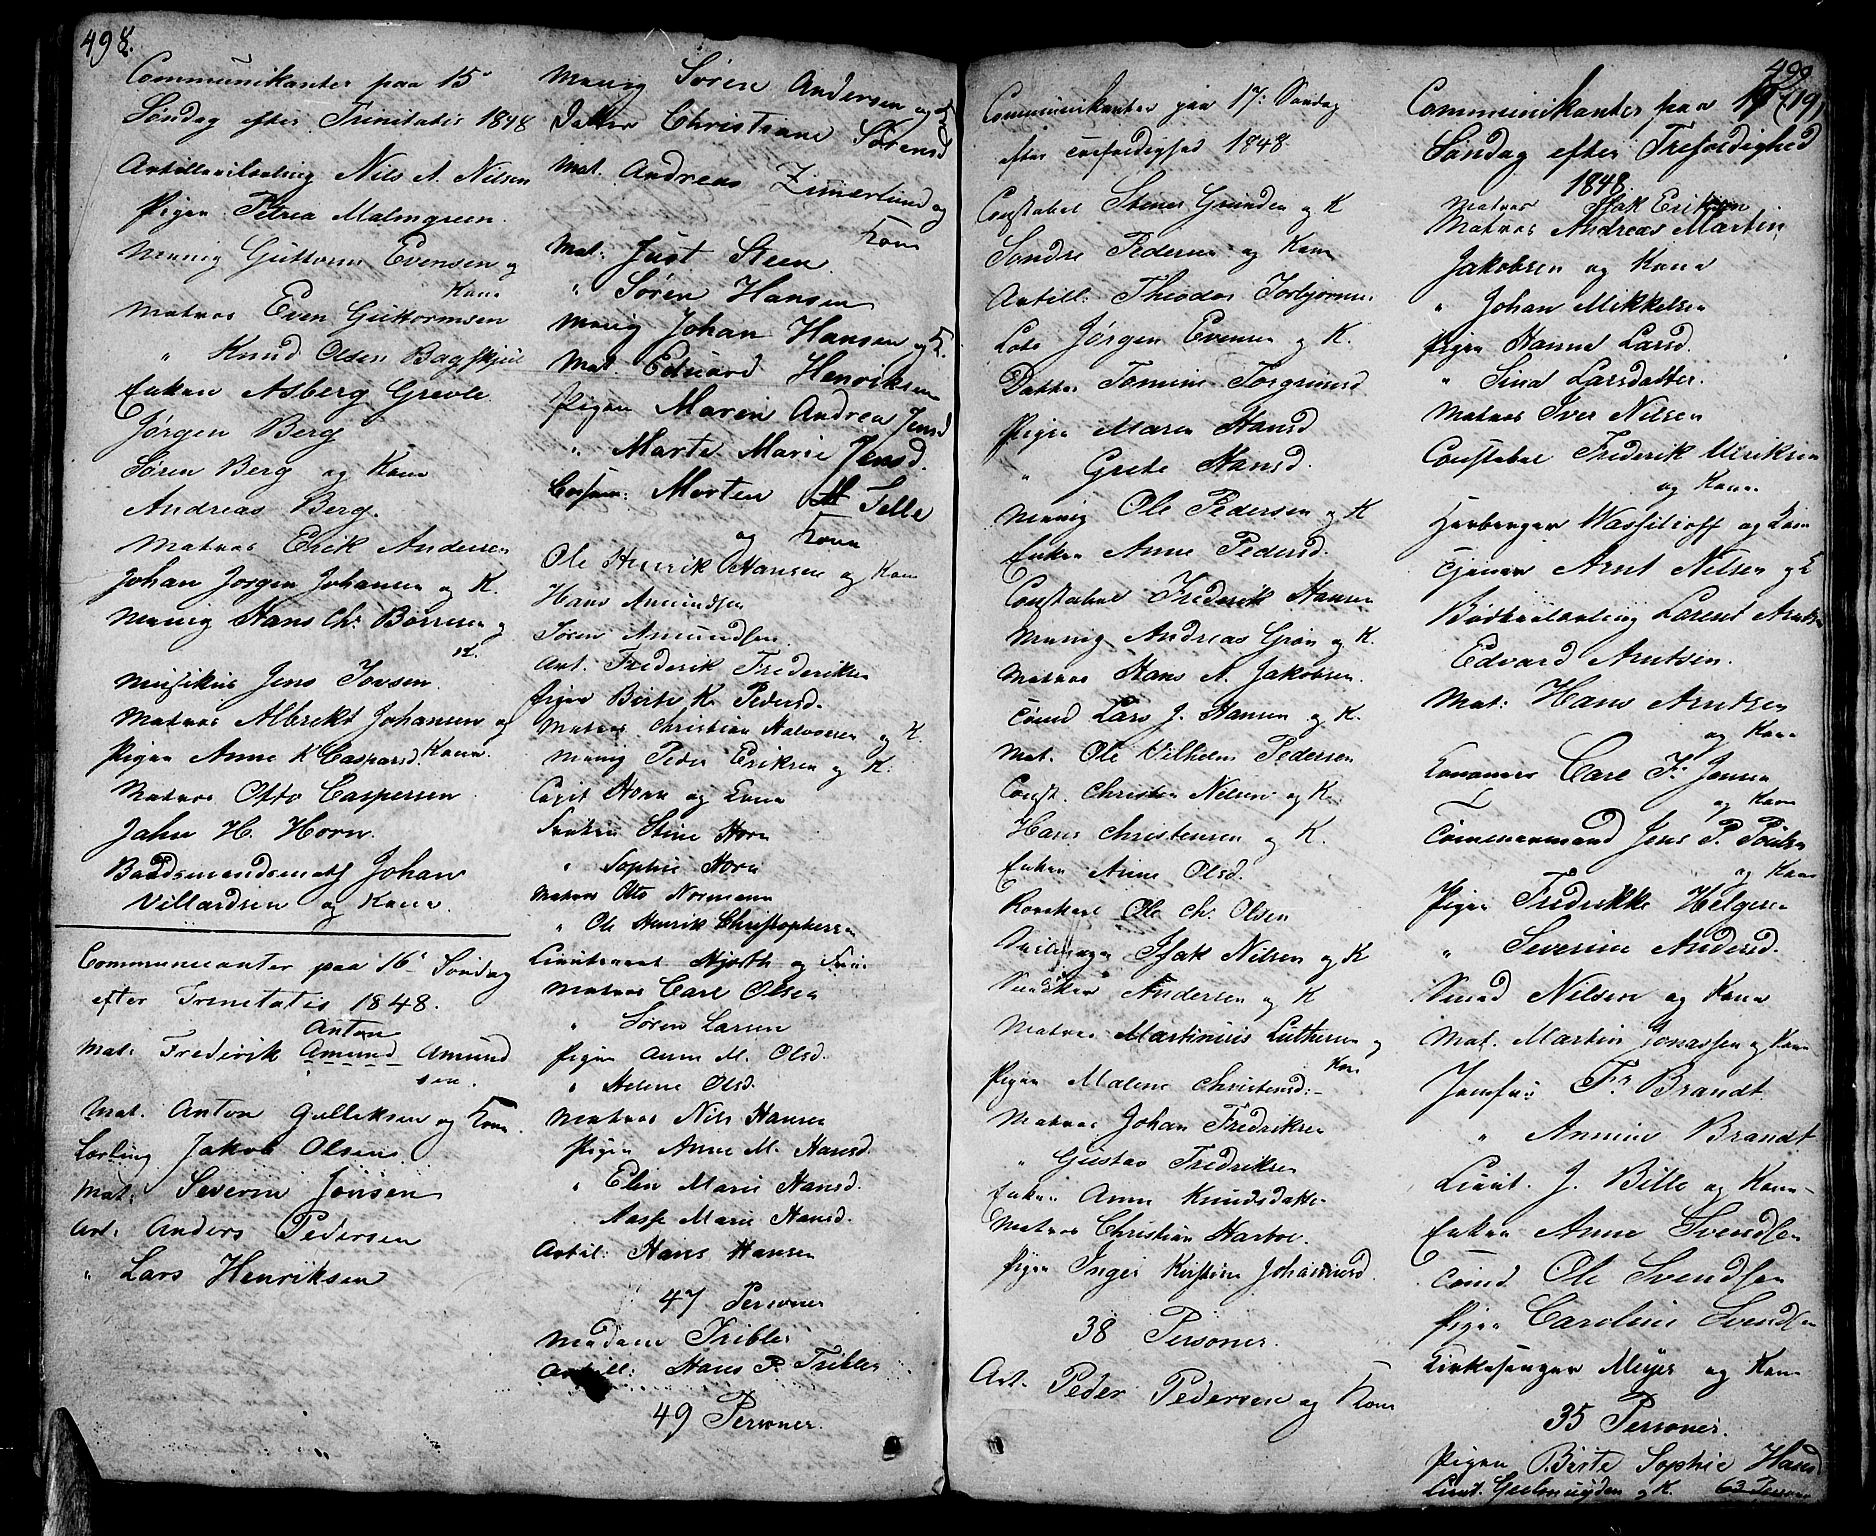 498.
Communikanter paa 15de
Søndag efter Trinitatis 1848
Artillerilærling Nils A. Nilsen
Pigen Petrea Malmgreen.
Menig Guttorm Evensen og
Kone
Matros Even Guttormsen
" Knud Olsen Bagskjul
Enken Asberg Grevle
Jørgen Berg
Søren Berg og Kone
Andreas Berg.
Matros Erik Andersen
Johan Jørgen Johansen og K.
Menig Hans Chr. Børresen og
K.
Musikus Jens Iversen.
Matros Albrekt Johansen og
Kone.
Pigen Anne K Caspersd.
Matros Otto Caspersen
John H. Horn.
Baadsmandsmath Johan
Villardsen og Kone.
Communicanter paa 16de Søndag
efter Trinitatis 1848.
Anton
Mat: Frederik Amund Amund
sen.
Mat. Anton Gulliksen og Kone.
Lærling Jakob Olsen.
Mat: Severin Jonsen
Art: Anders Pedersen
" Lars Henriksen
Menig Søren Andersen og K
Datter Christiane Sørensd
Mat. Andreas Zimerlund og
Kone
Mat: Just Steen.
" Søren Hansen
Menig Johan Hansen og K.
Mat. Eduard Henriksen
Pigen Maren Andrea Jensd
" Marte Marie Jensd.
Morten Telle
og Kone
Ole Henrik Hansen og Kone
Hans Amundsen
Søren Amundsen
Art. Frederik Frederiksen
Pigen Berte K. Pedersd.
Matros Christian Halvorsen og K.
Menig Peder Eriksen og K.
Capit Horn og Kone
Frøken Stine Horn
" Sophie Horn
Matros Otto Normann
" Ole Henrik Christophersen
Lieutenant Hjorth og Frue
Matros Carl Olsen
" Søren Larsen
Pigen Anne M. Olsd.
" Helene Olsd.
Matros Nils Hansen
Pigen Anne M. Hansd.
" Elen Marie Hansd.
" Aasse Marie Hansd.
Artil: Hans Hansen
47 Personer
Madam Tribler
Artill: Hans P. Tribler
49 Personer.
499.
Communikanter paa 17: Søndag
efter Trefoldighed 1848.
Constabel Stener Gunden og K
Søndre Pedersen og Kone
Artill: Theodor Torbjørns.
Lods Jørgen Evensen og K.
Datter Tomine Torgrimsd
Pigen Maren Hansd
" Grete Hansd.
Menig Ole Pedersen og K
Enken Anne Pedersd.
Constabel Frederik Hansen
Menig Andreas Grøn og K.
Matros Hans A. Jakobsen.
Tømd Lars J. Hansen og K.
Mat. Ole Vilhelm Pedersen
Const. Christen Nilsen og K.
Hans Christensen og K.
Enken Anne Olsd.
Ole Chr. Olsen
Isak Nilsen og K
Andersen og K
Matros Martinius Luthersen og
Kone
Pigen Malene Christensd:
Matros Johan Fredriksen
" Gustav Fredriksen
Enken Anne Knudsdatter
Matros Christian Harboe.
Pigen Inger Kirstine Johannesd.
38 Personer.
Art. Peder Pedersen og Kone
Communikanter paa 19
Søndag efter Trefoldighed
1848
Matros Isak Eriksen
Matros Andreas Martin
Jakobsen og Kone
" Johan Mikkelsen
Pigen Hanne Larsd.
" Sina Larsdatter.
Matros Iver Nilsen
Constabel Frederik Ulriksen
og Kone.
Wassilioff og Kone
Arnt Nilsen og K
Bødkerlærling Larens Arntsen
Edvard Arntsen.
Mat: Hans Arntsen
og Kone
Carl F. Jensen
og Kone
Tømmermand Jens P. Poulsen
og Kone
Pigen Fredrikke Helgesen
" Severine Andersd.
Nilsen og Kone
Mat. Martin Jonassen og Kone
Jomfru Fr. Brandt.
" Annine Brandt
Lieut. J. Bille og Kone
Enken Anne Svendsen
Tømd. Ole Svendsen
Pigen Caroline Svendsen
Kirkesanger Meyer og Kone
35 Personer.
Pigen Birte Sophie Hansd
Lieut. Geelmuyden og K. 63 Personer